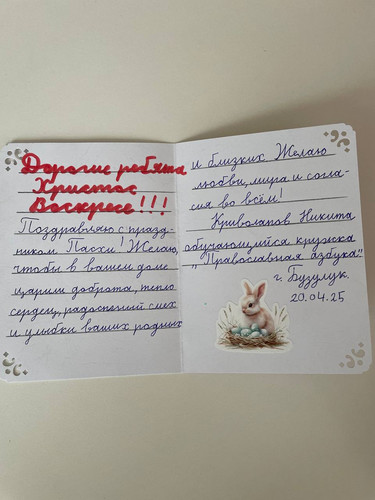 Дорогие ребята
Христос
Воскресе!!!
Поздравляю с празд-
ником Пасхи! Желаю,
чтобы в вашем доме
царили доброта, тепло
сердец, радостный смех
и улыбки ваших родных
и близких. Желаю
любви, мира и согла-
сия во всём!
Криволапов Никита
обучающийся кружка
"Православная азбука"
г. Бузулук.
20.04.25